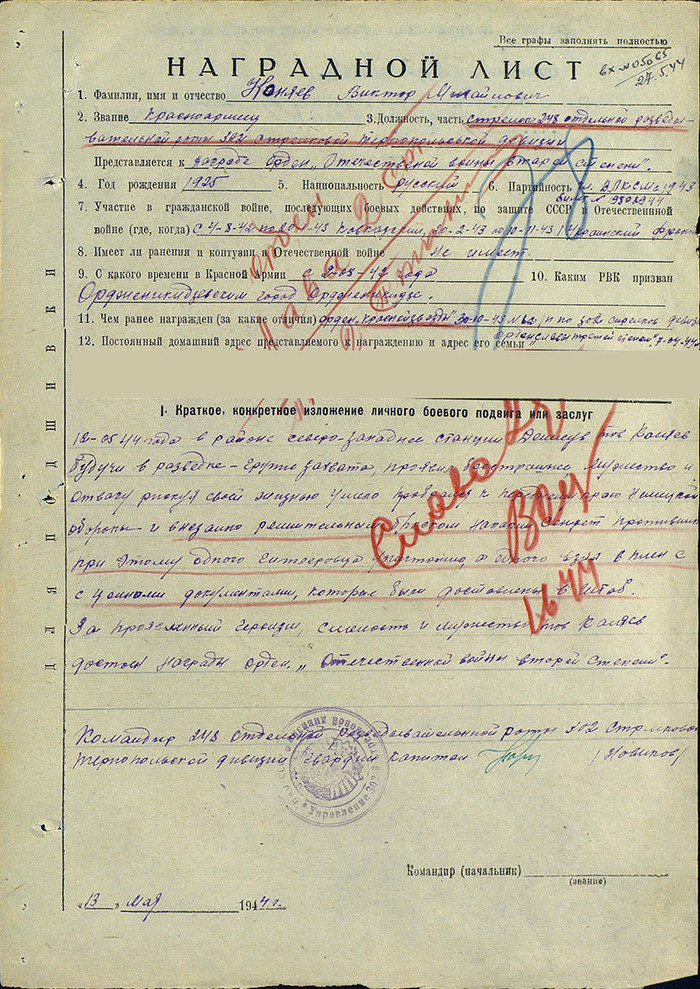 Все графы заполнять полностью
НАГРАДНОЙ ЛИСТ
вх №05065
27.5.44
1. Фамилия, имя и отчество Коняев Виктор Михайлович
2. Звание Красноармеец 3. Должность, часть стрелок 248 отдельной разведы-
вательной роты 302 стрелковой Тернопольской дивизии
Представляется к награде Орден „Отечественой войны второй степени".
4. Год рождения 1925 5. Национальность русский 6. Партийность чл. ВЛКСМ с 1943
билет №
7. Участие в гражданской войне, последующих боевых действиях, по защите СССР в Отечественной
войне (где, когда) с 4-8-42 по 43 20-2-43 по 10-11-43 Украинский фронт
8. Имеет ли ранения и контузии в Отечественной войне Не имеет.
9. С какого времени в Красной Армии с года 10. Каким РВК призван
Орджоникидзевским город Орджоникидзе.
11. Чем ранее награжден (за какие отличия) орден „Красной звезды" 30-10-43 п по 302 стрелков дивизии
орден славы третей степени, 7-04-44
12. Постоянный домашний адрес представляемого к награждению и адрес его семьи
орден
Славы
I. Краткое, конкретное изложение личного боевого подвига или заслуг
12-05-44 года в районе северо-западнее станции тов Каняев
будучи в разведке - группе захвата, проявил бесстрашие мужество и
отвагу рискуя своей жизнью умело пробрался к переднему краю Немецкой
обороны и внезапно решительным броском напали секрет противника
при этому одного гитлеровца уничтожил, а одного взял в плен с
с ценными документами, которые были доставлены в штаб.
За проявленный героизм, смелость и мужество тов Каняев
достоин награды орден „Отечественной войны второй степени".
Слава
1.6.44
Командир 248 отдельной разведывательной роты 302 стрелковой
Тернопольской дивизии гвардии капитан /Новиков/
Управление 302
Командир (начальник)
(звание)
„13" мая 1944 г.
ДЛЯ ПОДШИВКИ